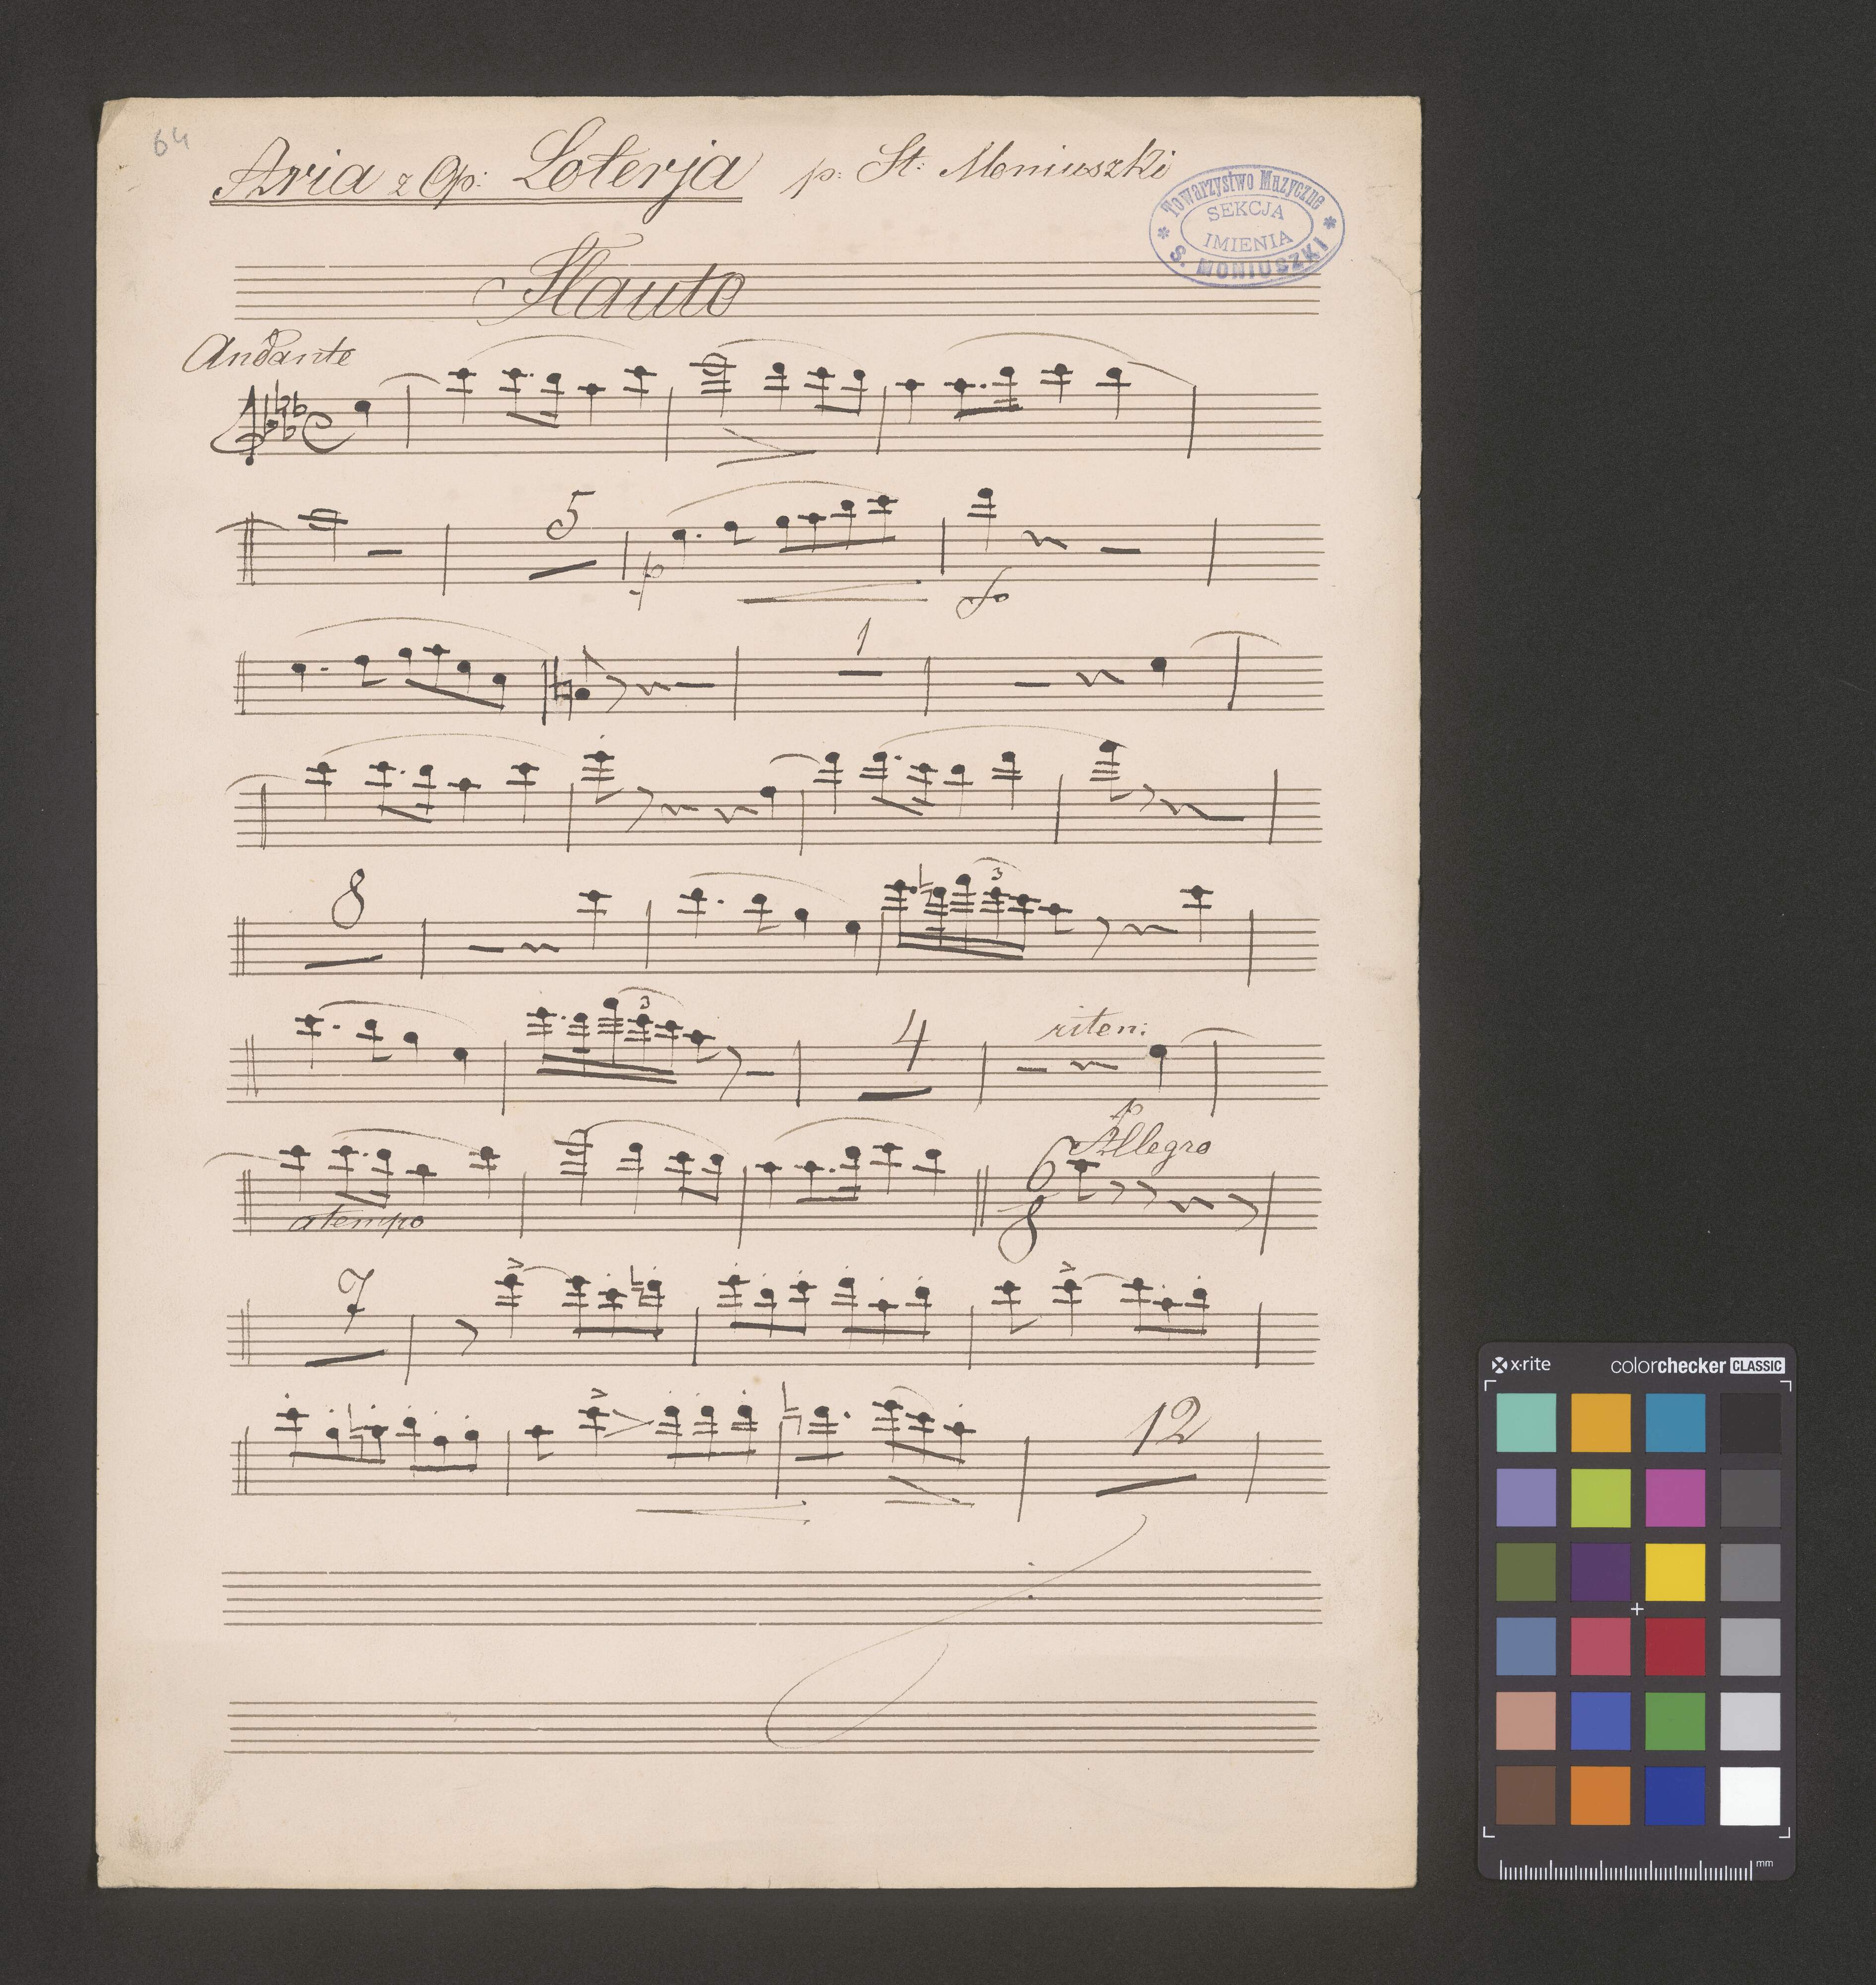 64
Aria z Op: Loterja p: St: Moniuszki
Towarzystwo Muzyczne
SEKCJA
IMIENIA
S. MONIUSZKI
Flauto
Andante
5
p
fo
1
8
3
3
4
riten:
p
Allegro
6
8
a tempo
7
12
x·rite colorchecker CLASSIC
mm